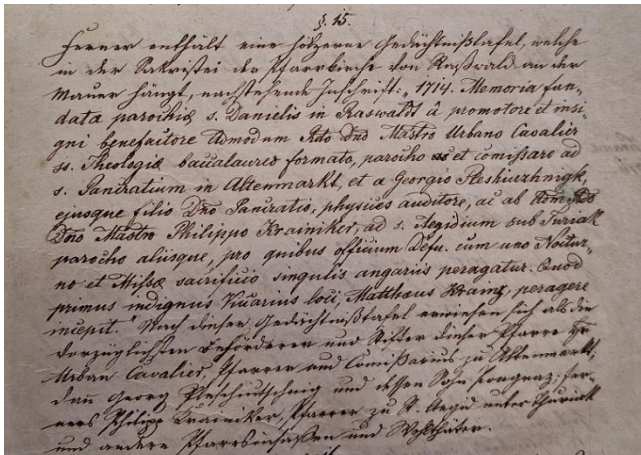 §. 15.
Ferner enthält eine hölzerne Gedächtnißtafel, welche
in der Sakristei der Pfarrkirche von Raßwald an der
Mauer hängt, nachstehende Inschrift: „1714. Memoria fun-
data parochiæ s. Danielis in Raswaldt â promotore et insi-
gni benefactore Admodum Rdo Dno Mastro Urbano Cavalier
ss. Theologiæ baccalaureo formato, parocho et comissaro ad
s. Pancratium in Altenmarkt, et a Georgio
ejusque filio Dno Pancratio, physices auditore, ac ab Adm Rdo
Dno Mastro Philippo Krainiker, ad s. Aegidium sub Turiak
parocho aliisque, pro quibus officium Defu. cum uno Noctur-
no et Missæ sacrificio singulis angariis peragatur. Quod
primus indignus Vicarius loci, Matthæus Krainz, peragere
incepit." Nach dieser Gedächtnißtafel erweisen sich als die
vorzüglichsten Beförderer und Stifter dieser Pfarre Hr
Urban Cavalier, Pfarrer und Comissarius zu Altenmarkt;
dañ Georg und dessen Sohn fer-
ners Philipp Krainiker, Pfarrer zu St. Aegid unter Thuriak
und andere Pfarrsinsaßen und Wohlthäter.